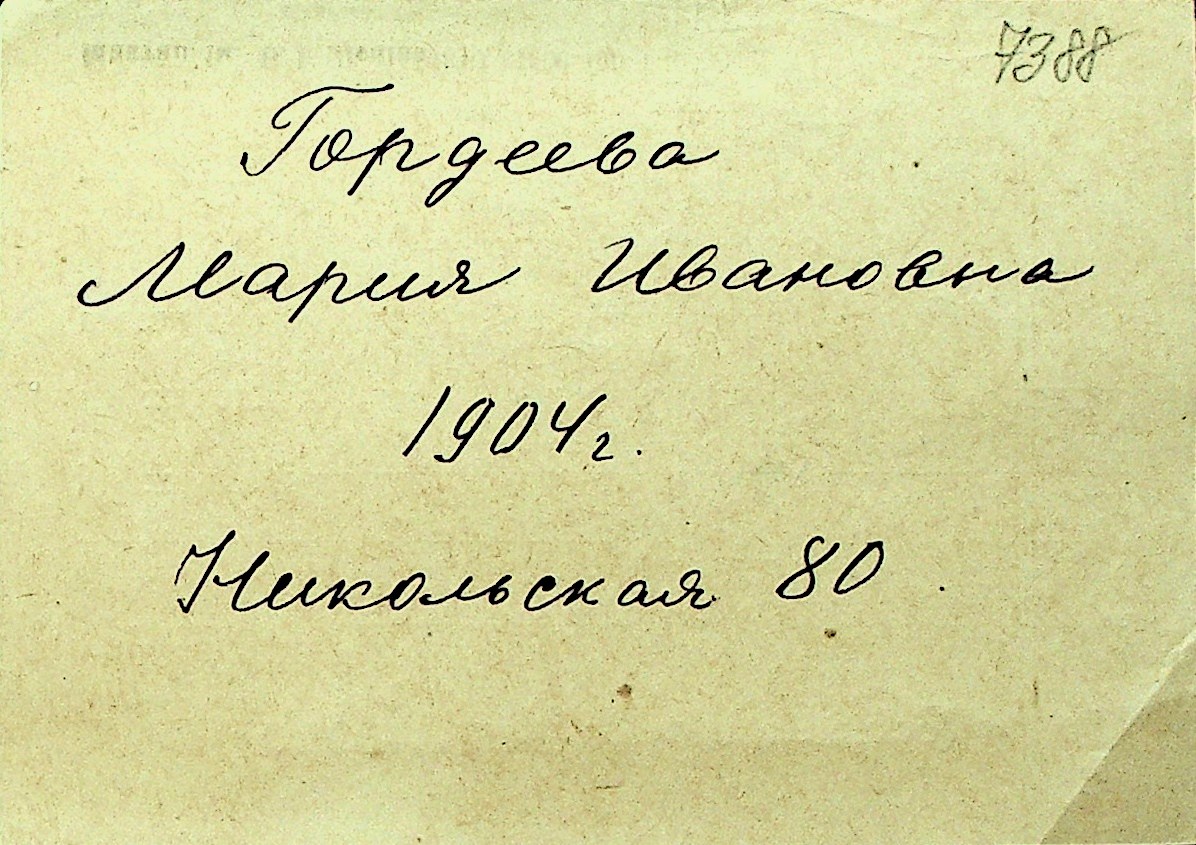 7388
Гордеева
Мария Ивановна
1904г.
Никольская 80.